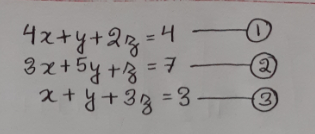 4x+y+2z=4 —— ①
3x+5y+z=7 —— ②
x+y+3z=3 —— ③